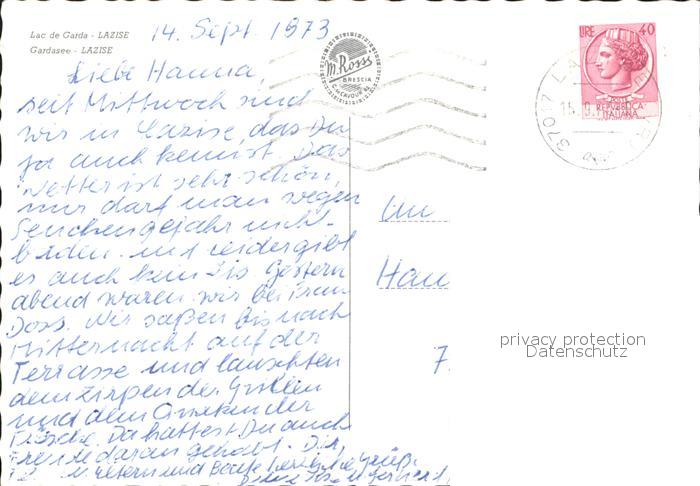 Lac de Garda - LAZISE
Gardasee - LAZISE
14. Sept. 1973
M. Rossi
BRESCIA
LIRE 40
POSTE
REPVBBLICA
ITALIANA
37017 LA
Liebe Hanna,
seit Mittwoch sind
wir in Lazise, das Du
ja auch kennst. Das
Wetter ist sehr schön,
nur darf man wegen
Seuchengefahr nicht
baden. und leider gibt
es auch kein Eis. Gestern
abend waren wir bei Frau
Doss. Wir saßen bis nach
Mitternacht auf der
Terrasse und lauschten
dem Zirpen der Grillen
und dem Quaken der
Frösche. Da hättest Du auch
Freude daran gehabt. Dir,
Eltern und herzliche Grüße
Han
7.
privacy protection
Datenschutz